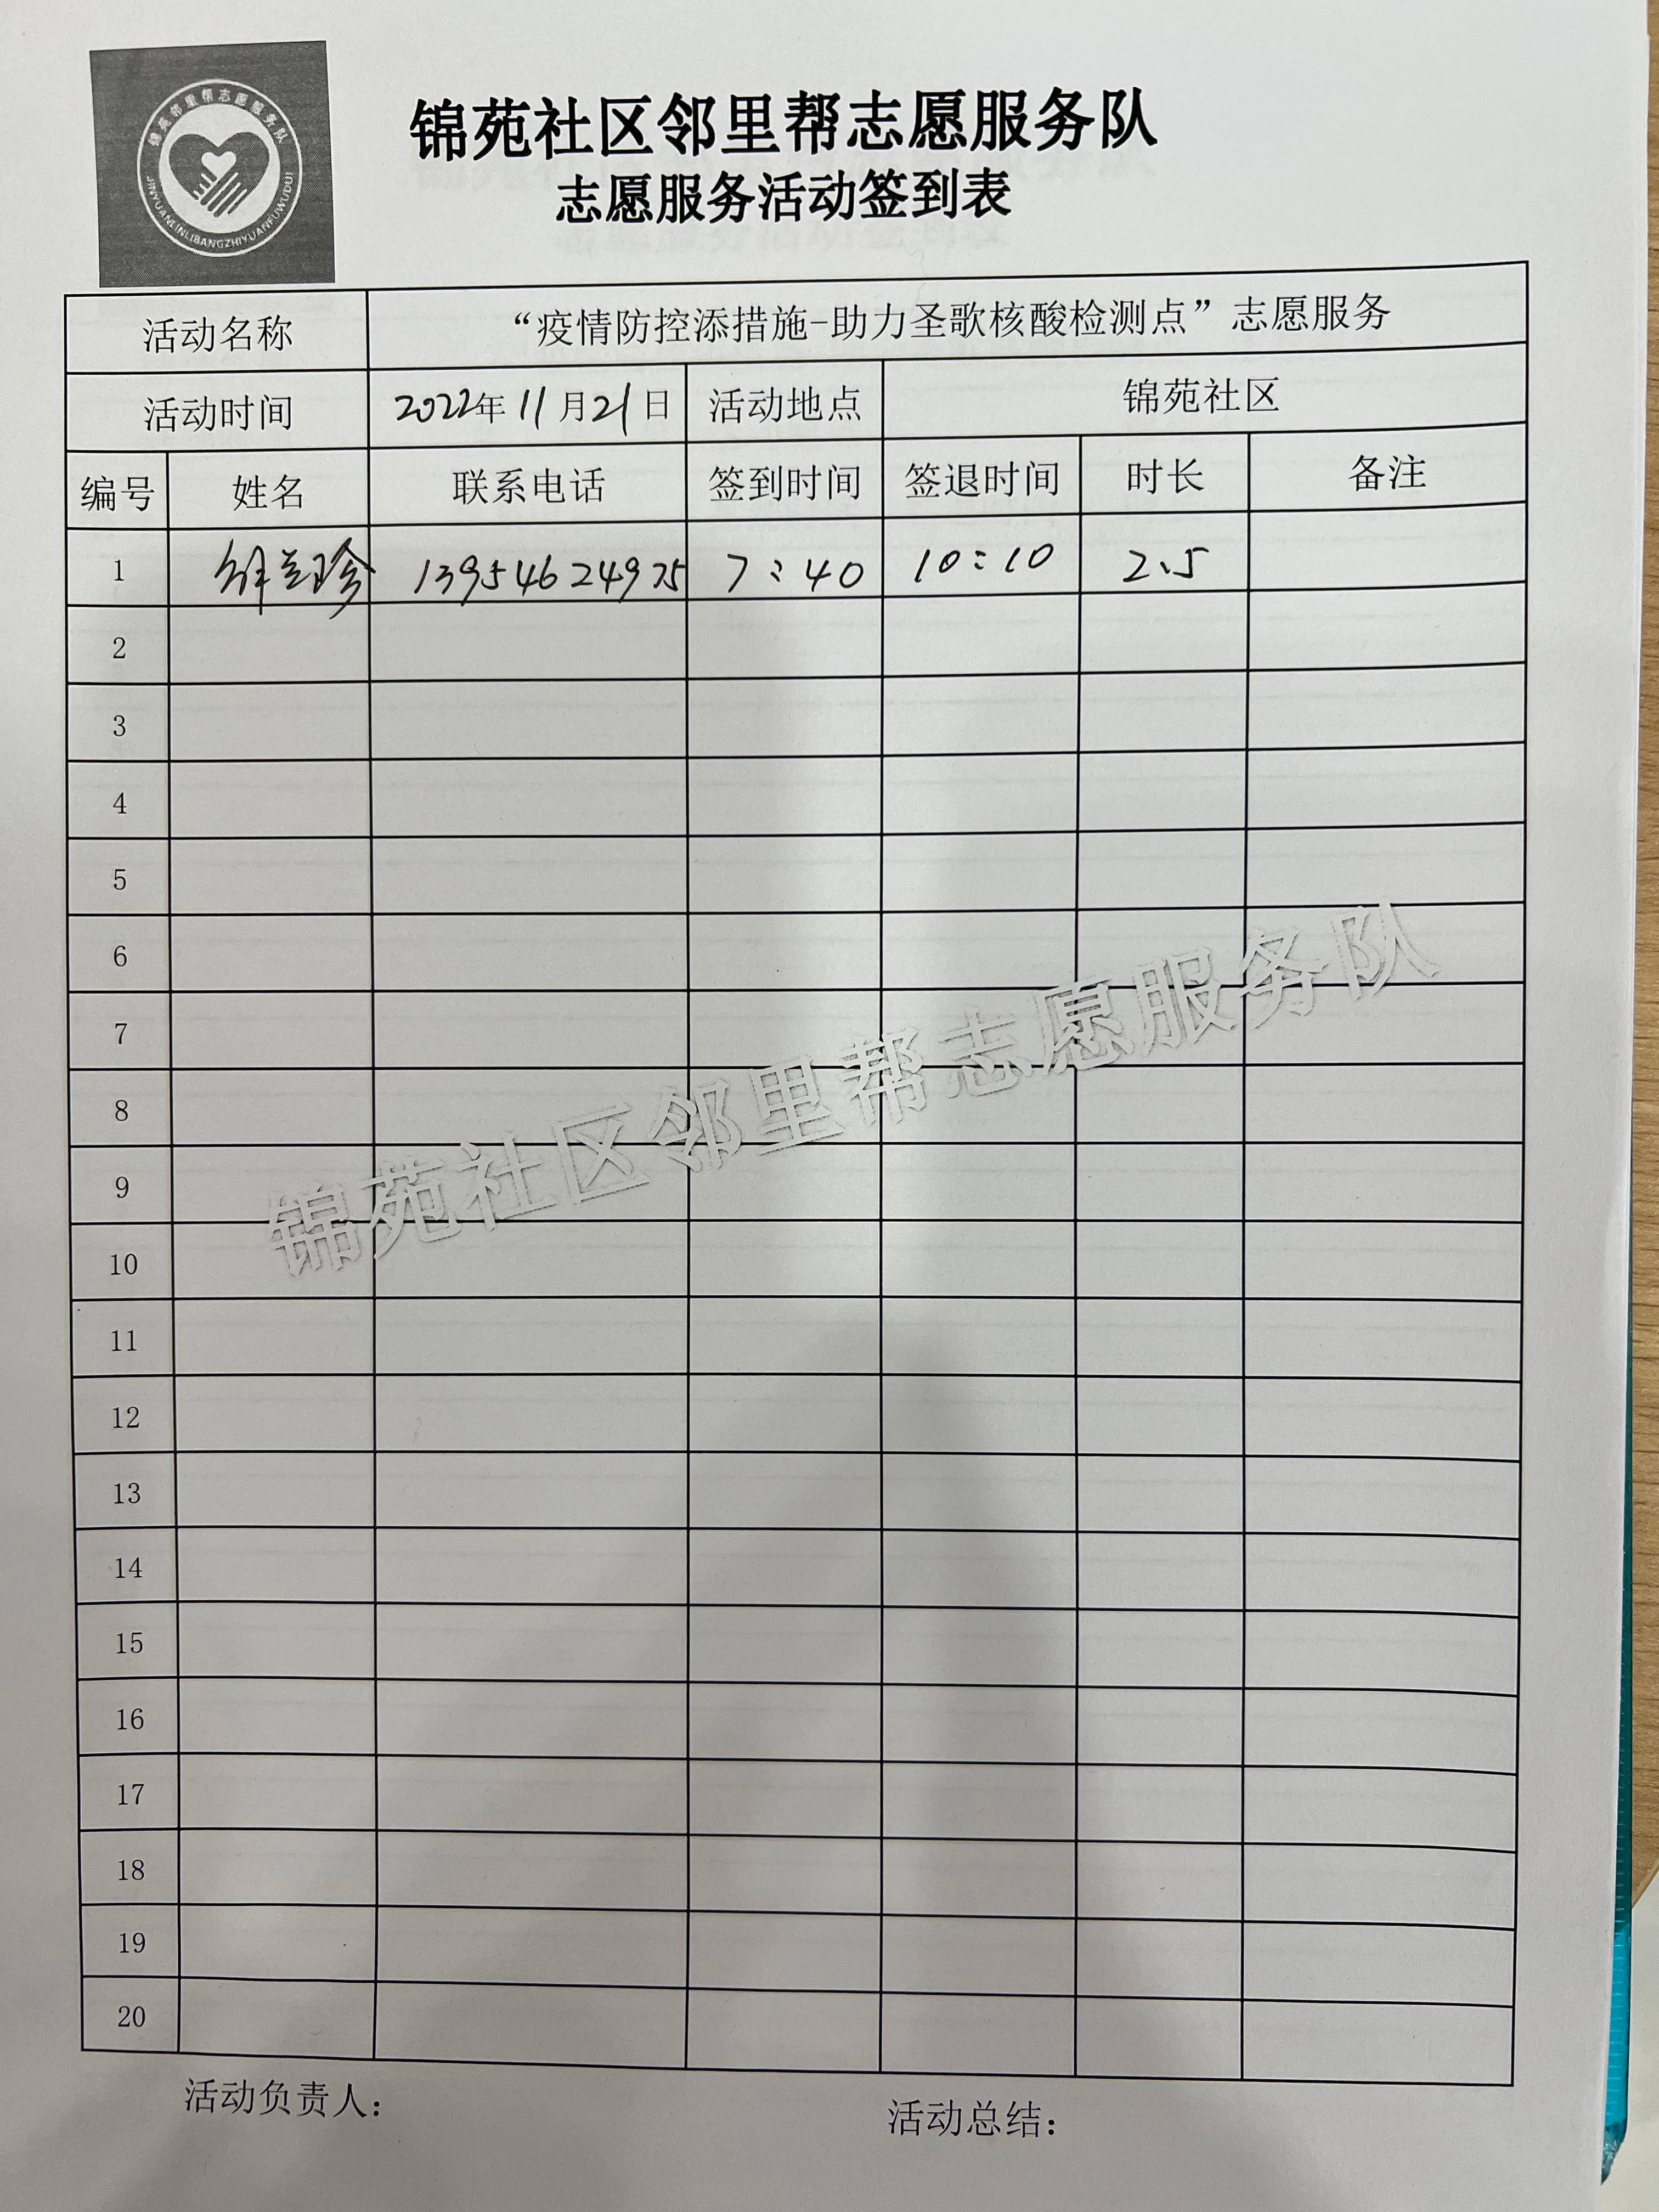 锦苑邻里帮志愿服务队
JINYUANLINLIBANGZHIYUANFUWUDUI
锦苑社区邻里帮志愿服务队
志愿服务活动签到表
活动名称 “疫情防控添措施-助力圣歌核酸检测点”志愿服务
活动时间 2022年11月21日 活动地点 锦苑社区
编号 姓名 联系电话 签到时间 签退时间 时长 备注
1 13954624975 7:40 10:10 2.5
2
3
4
5
6
7
8
9
10
11
12
13
14
15
16
17
18
19
20
锦苑社区邻里帮志愿服务队
活动负责人: 活动总结: